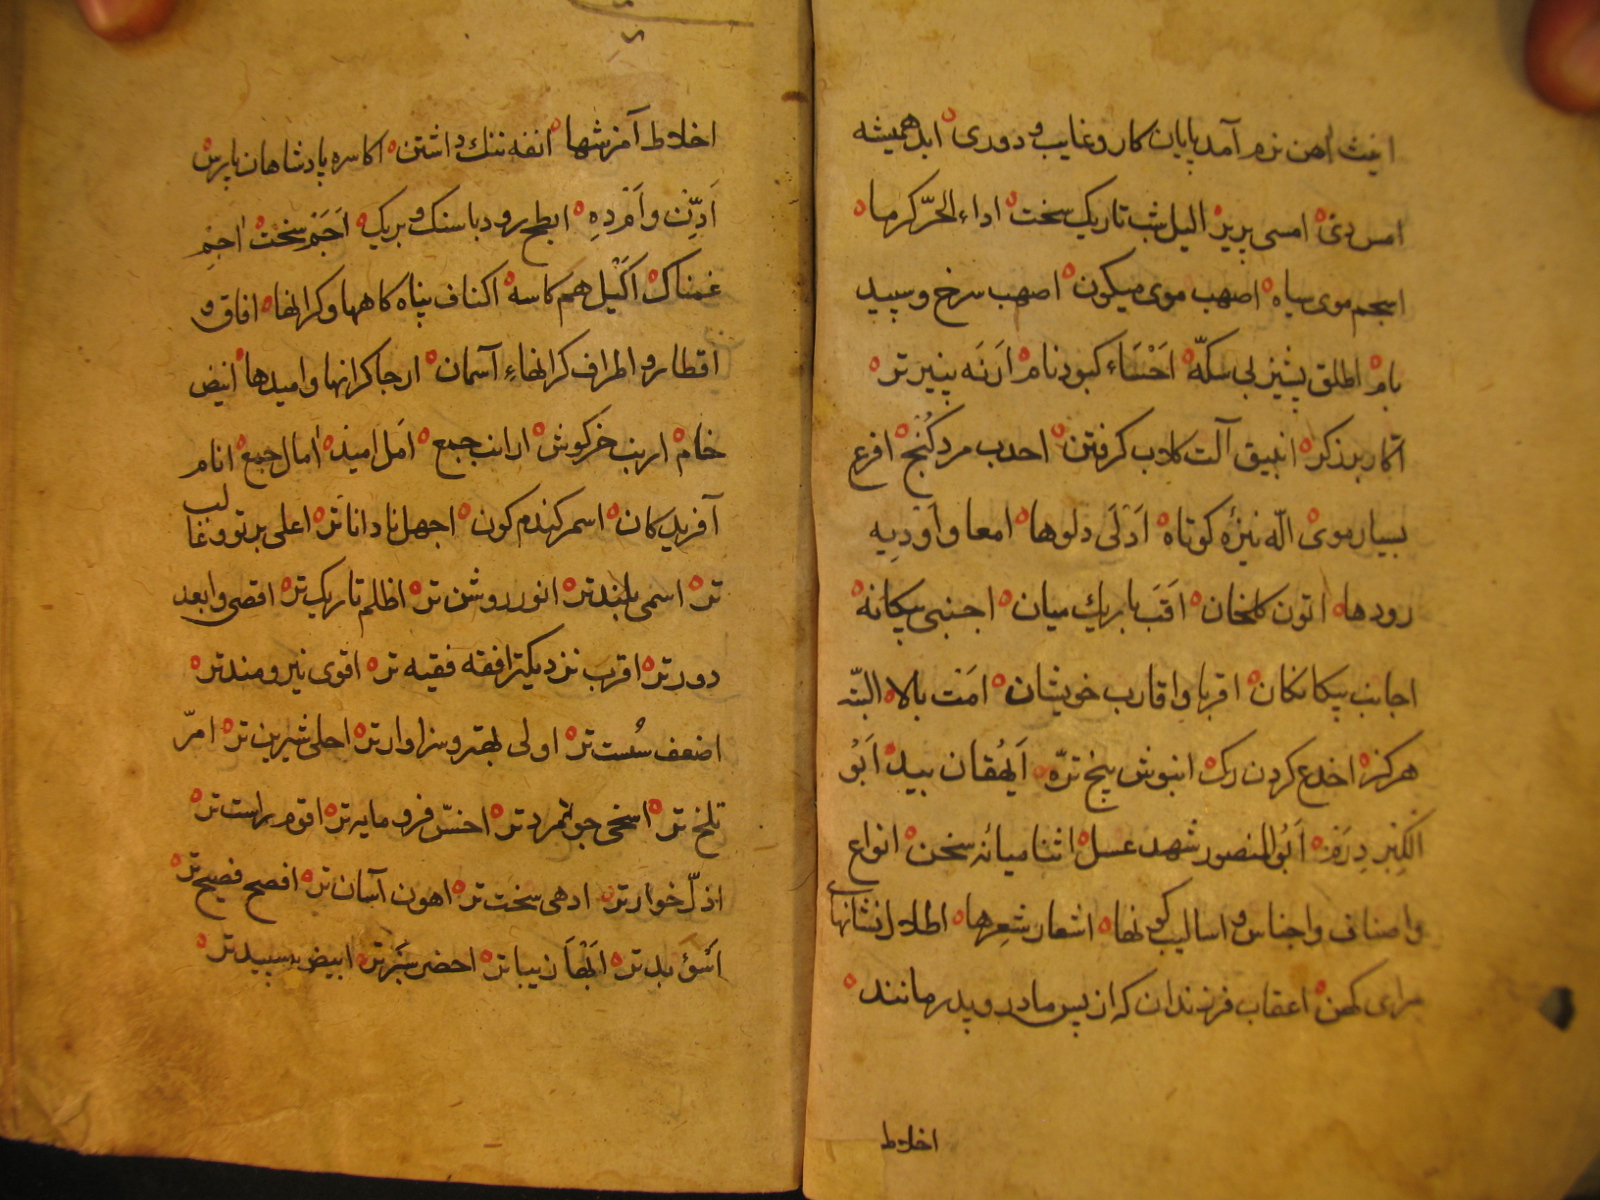 انیث آهن نرم آمد پایان کار و غایب و دوری ابد همیشه
امس دی امسی پریر الیل شب تاریک سخت اداء الحرّ کرما
اسحم موی سیاه اصهب موی میکون اصهب سرخ و سپید
بام اطلق پشیز بی سکّه اَحْسَاء کبود نام اَرَنَه پنیر تر
اکار برزکر انبیق آلت کلاب کرفتن احدب مرد کُنج افرع
بسیار موی الّه نیزهٔ کوتاه اَدْلَی دلوها امعا و اَوْدِیه
رودها اتون کلخان اَقَبّ باریك میان اجنبی بیکانه
اجانب بیکانکان اقربا و اقارب خویشان اَمْت بالا البتّه
هرکز اخدع کردن رک انبوش بیخ ترّه اَیْهُقان بید اَبُو
اَبُو المنصور شهد عسل اثنا میانهٔ سخن انواع
و اصناف و اجناس و اسالیب کونها اشعار شعرها اطلال نشانهای
سرای کهن اعقاب فرزندان که از پس مادر و پدر مانند
اخلاط
اخلاط آمزشها انفه ننك داشتن اکاسره پادشاهان پارس
اَدِّن و اَمْرَدِه ابطح رود با سنك و بریک اَجَمْ سخت اجنِم
غمناک اَکْیل هم کاسه اکناف پناه کاهها و کرانها افاق و
اقطار و اطراف کرانهاءِ آسمان ارجا کرانها و امیدها انیض
خام ارنب خرکوش ارانب جمع اَمَل امید اٰمال جمع انام
آفریدکان اسمر کندم کون اجهل نادانا تر اعلی برتر و غالب
تر اسمی بلندتر انور روشن تر اظلم تاریک تر اقصی و ابعد
دورتر اقرب نزدیکتر افقه فقیه تر اقوی نیرومندتر
اضعف سُست تر اولی بهتر و سزاوارتر احلی شیرین تر امرّ
تلخ تر اسخی جوانمردتر اخسّ فرومایه تر اقوم راست تر
اذلّ خوارتر ادهی سخت تر اهون آسان تر افصح فصیح تر
اَسْوَءُ بدتر اَبْهَا زیباتر اخضر سَبزتر ابیض سپیدتر